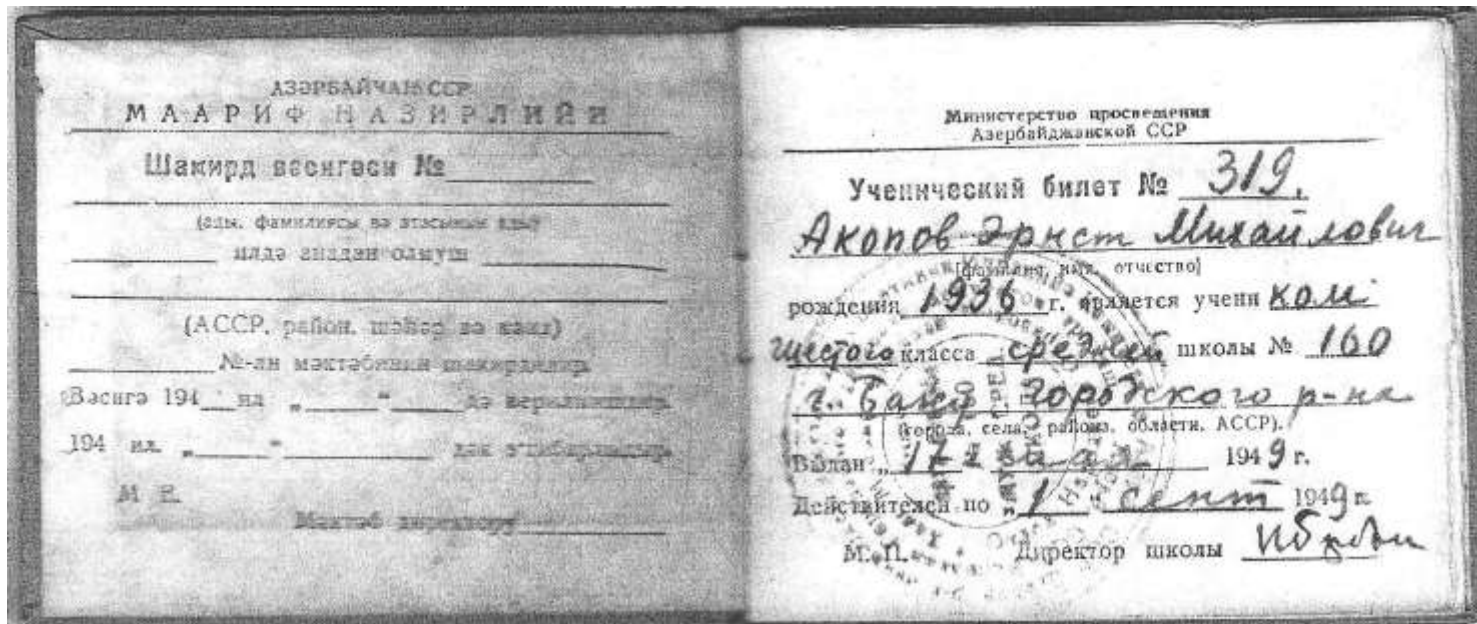 АЗӘРБАЙҸАН ССР
МААРИФ НАЗИРЛИЙИ
Шакирд вәсигәси №
(ады, фамилиясы вә атасынын ады)
илдә анадан олмуш
(АССР, район, шәһәр вә кәнд)
№-ли мәктәбинин шакирдидир.
Вәсигә 194 ил „ “ дә верилмишдир.
194 ил „ “ дәк э'тибарлыдыр.
М Е.
Мәктәб директору
Министерство просвещения
Азербайджанской ССР
Ученический билет № 319.
Акопов Эрнст Михайлович
(фамилия, имя, отчество)
рождения 1936 г. является учеником
шестого класса средней школы № 160
г. Баку Городского р-на
(города, села, района, области, АССР).
Выдан „17 “ мая 1949 г.
Действителен по „1 “ сент 1949 г.
М. П. Директор школы